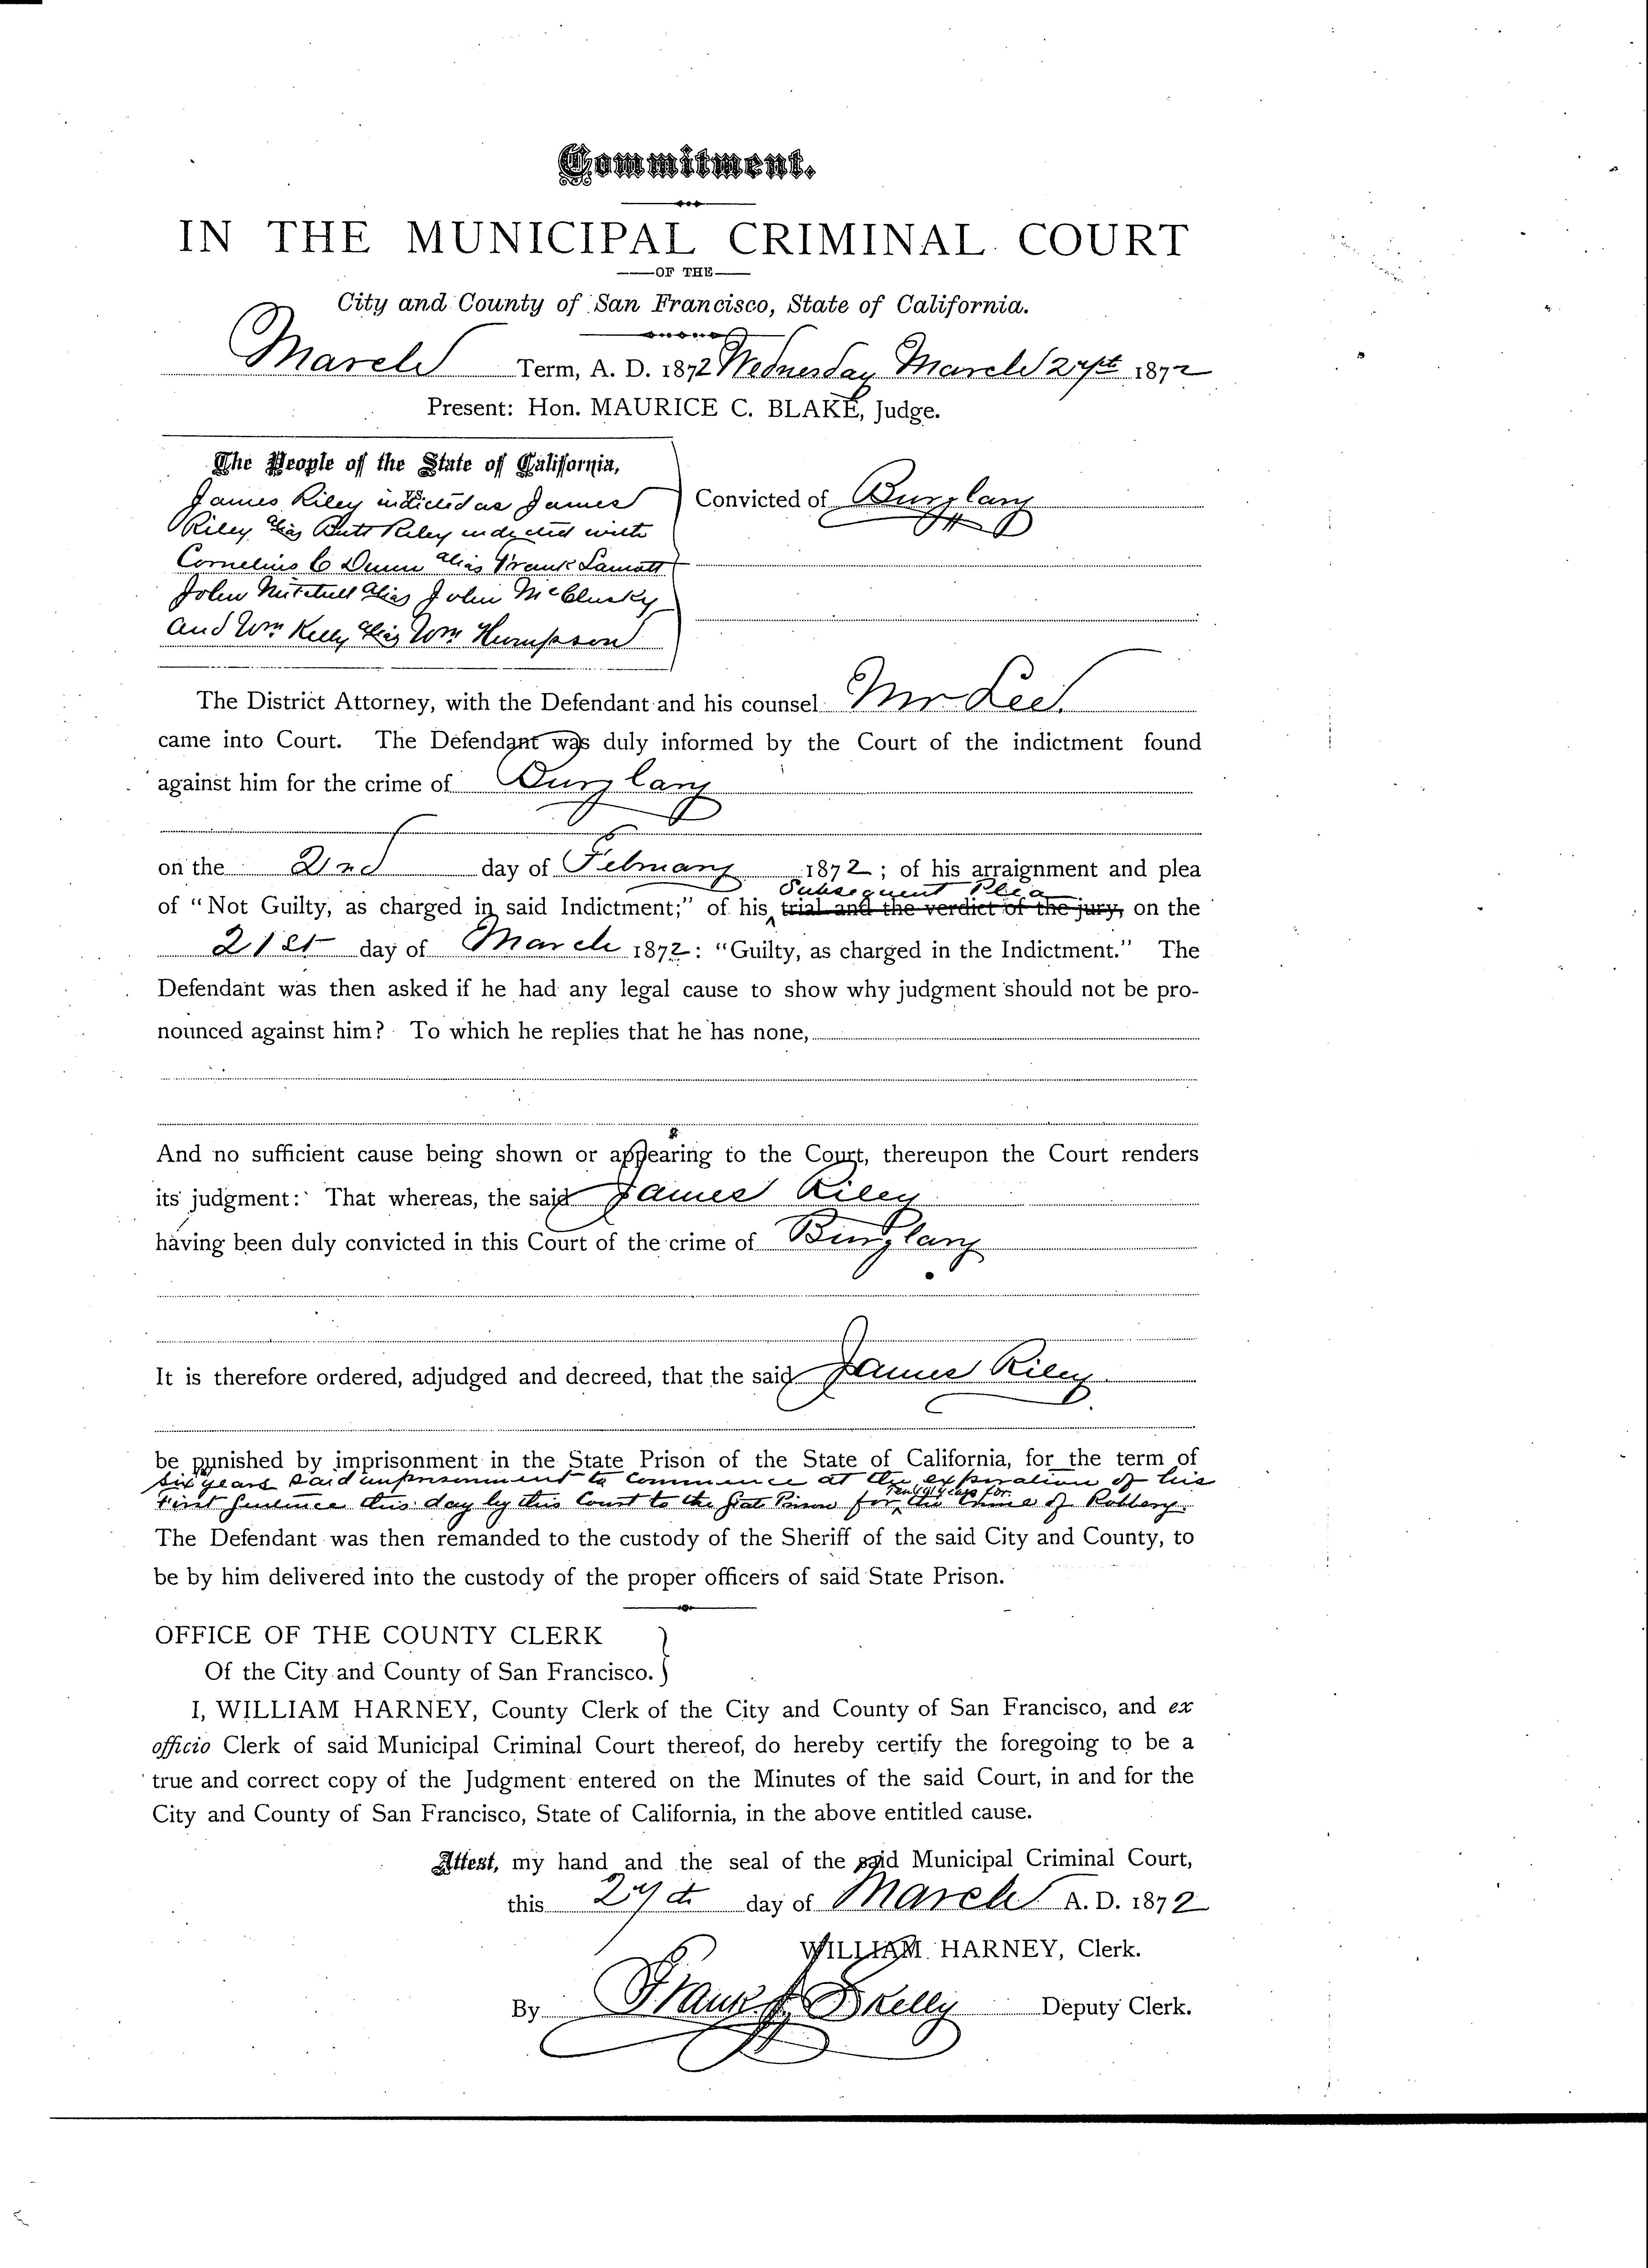 Commitment.
IN THE MUNICIPAL CRIMINAL COURT
OF THE
City and County of San Francisco, State of California.
March Term, A. D. 1872 Wednesday March 27th 1872
Present: Hon. MAURICE C. BLAKE, Judge.
The People of the State of California,
vs.
James Riley indicted as James
Riley alias Butt Riley indicted with
Cornelius C Dunn alias Frank Lamott
John Mitchell alias John McClusky
and Wm Kelly alias Wm Humpson
Convicted of Burglary
The District Attorney, with the Defendant and his counsel Mr Lee
came into Court. The Defendant was duly informed by the Court of the indictment found
against him for the crime of Burglary
on the 2nd day of February 1872; of his arraignment and plea
Subsequent Plea
of "Not Guilty, as charged in said Indictment;" of his trial and the verdict of the jury, on the
21st day of March 1872: "Guilty, as charged in the Indictment." The
Defendant was then asked if he had any legal cause to show why judgment should not be pro-
nounced against him? To which he replies that he has none,
And no sufficient cause being shown or appearing to the Court, thereupon the Court renders
its judgment: That whereas, the said James Riley
having been duly convicted in this Court of the crime of Burglary
It is therefore ordered, adjudged and decreed, that the said James Riley
be punished by imprisonment in the State Prison of the State of California, for the term of
Six years said imprisonment to commence at the expiration of his
Ten years for
First Sentence this day by this Court to the State Prison for the Crime of Robbery.
The Defendant was then remanded to the custody of the Sheriff of the said City and County, to
be by him delivered into the custody of the proper officers of said State Prison.
OFFICE OF THE COUNTY CLERK
Of the City and County of San Francisco.
I, WILLIAM HARNEY, County Clerk of the City and County of San Francisco, and ex
officio Clerk of said Municipal Criminal Court thereof, do hereby certify the foregoing to be a
true and correct copy of the Judgment entered on the Minutes of the said Court, in and for the
City and County of San Francisco, State of California, in the above entitled cause.
Attest, my hand and the seal of the said Municipal Criminal Court,
this 27th day of March A. D. 1872
WILLIAM HARNEY, Clerk.
By Frank J Skelly Deputy Clerk.